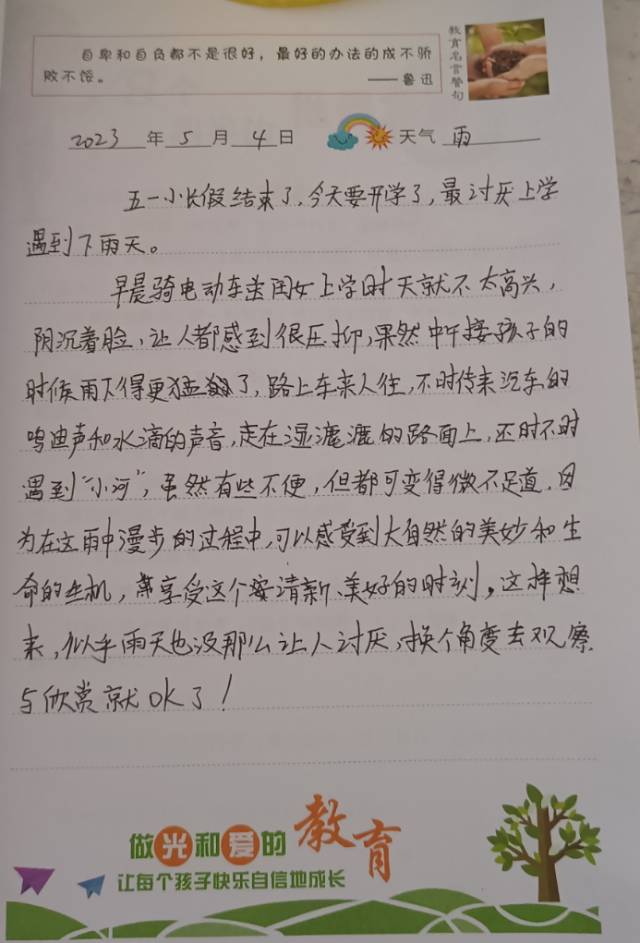 自卑和自负都不是很好，最好的办法的成不骄
败不馁。
——鲁迅
教育名言警句
2023年5月4日 天气 雨
五一小长假结束了，今天要开学了，最讨厌上学
遇到下雨天。
早晨骑电动车送闺女上学时天就不太高兴，
阴沉着脸，让人都感到很压抑，果然中午接孩子的
时候雨下得更猛了，路上车来人往，不时传来汽车的
鸣迪声和水滴的声音，走在湿漉漉的路面上，还时不时
遇到“小河”，虽然有些不便，但都可变得微不足道，因
为在这雨中漫步的过程中，可以感受到大自然的美妙和生
命的生机，享受这个清新、美好的时刻。这样想
来，似乎雨天也没那么让人讨厌，换个角度去观察
与欣赏就OK了！
做光和爱的教育
让每个孩子快乐自信地成长